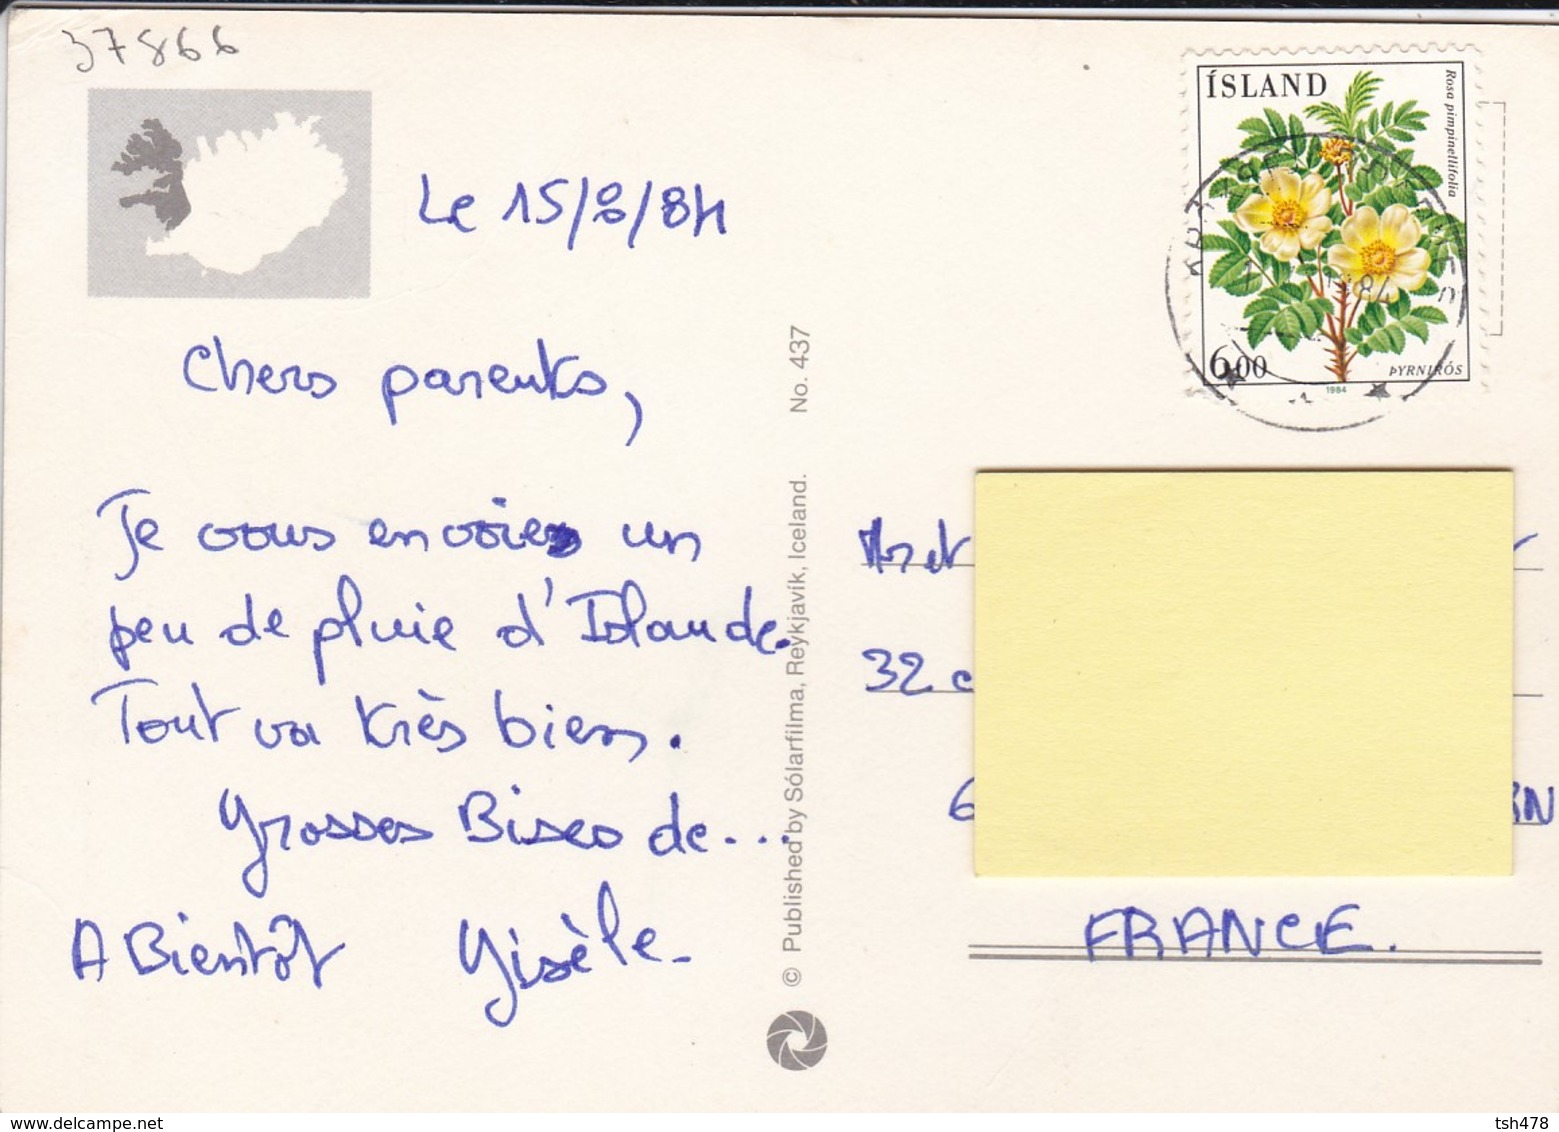 37866
Le 15/8/84
Chers parents,
Je vous envoie un
peu de pluie d'Islande.
Tout va très bien.
Grosses Bises de...
A Bientôt Gisèle.
© Published by Sólarfilma, Reykjavík, Iceland. No. 437
ÍSLAND
Rosa pimpinellifolia
600
ÞYRNIRÓS
1984
84
32
6
RN
FRANCE.
tsh478